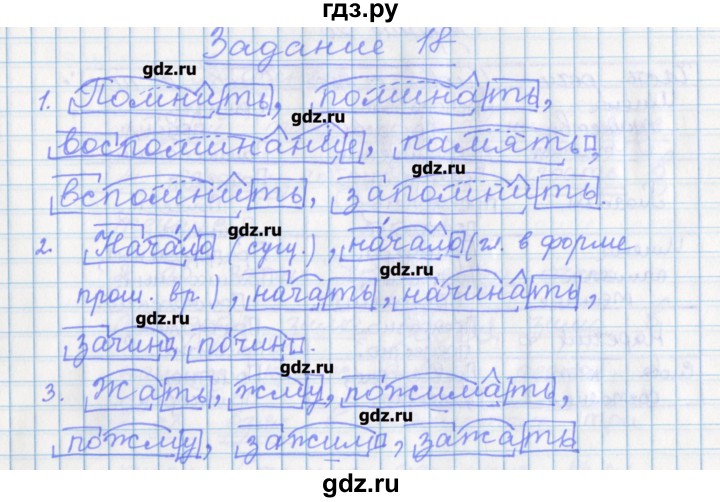 гдз.ру
Задание 18
gdz.ru
1. Помнить, поминать,
gdz.ru gdz.ru
воспоминание, память,
gdz.ru
вспомнить, запомнить.
gdz.ru
2. Начало (сущ.), начало (гл. в форме
прош. вр.), начать, начинать,
gdz.ru
gdz.ru
зачин, почин.
gdz.ru
3. Жать, жму, пожимать,
gdz.ru
пожму, зажим, зажать
gdz.ru